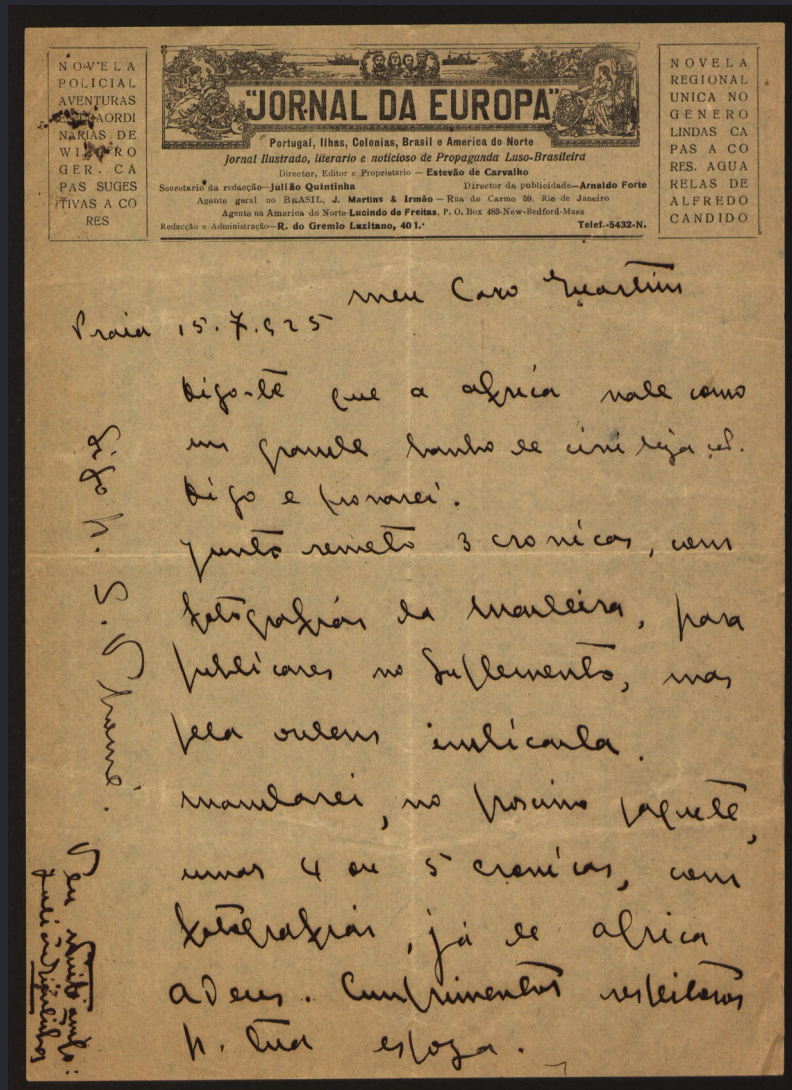 NOVELA
POLICIAL
AVENTURAS
EXTRAORDI
NARIAS DE
GER. CA
PAS SUGES
TIVAS A CO
RES
"JORNAL DA EUROPA"
Portugal, Ilhas, Colonias, Brasil e America do Norte
Jornal Ilustrado, literario e noticioso de Propaganda Luso-Brasileira
Director, Editor e Proprietario — Estevão de Carvalho
Secretario da redacção—Julião Quintinha Director da publicidade—Arnaldo Forte
Agente geral no BRASIL, J. Martins & Irmão — Rua do Carmo 59, Rio de Janeiro
Agente na America do Norte-Lucindo de Freitas. P. O. Box 483-New-Bedford-Mass
Redacção e Administração—R. do Gremio Luzitano, 40 1.º Telef.-5432-N.
NOVELA
REGIONAL
UNICA NO
GENERO
LINDAS CA
PAS A CO
RES. AGUA
RELAS DE
ALFREDO
CANDIDO
Meu Caro Martins
Praia 15.7.925
Digo-te que a africa vale como
um grande banho de
Digo e provarei.
Junto remeto 3 cronicas, com
fotografias da Madeira, para
publicares no Suplemento, mas
pela ordem indicada.
Mandarei, no proximo paquete,
umas 4 ou 5 cronicas, com
fotografias, já de africa
Adeus. Cumprimentos respeitosos
p. tua espoza.
Sigo p. S. Thomé.
Teu muito amigo:
Julião Quintinha